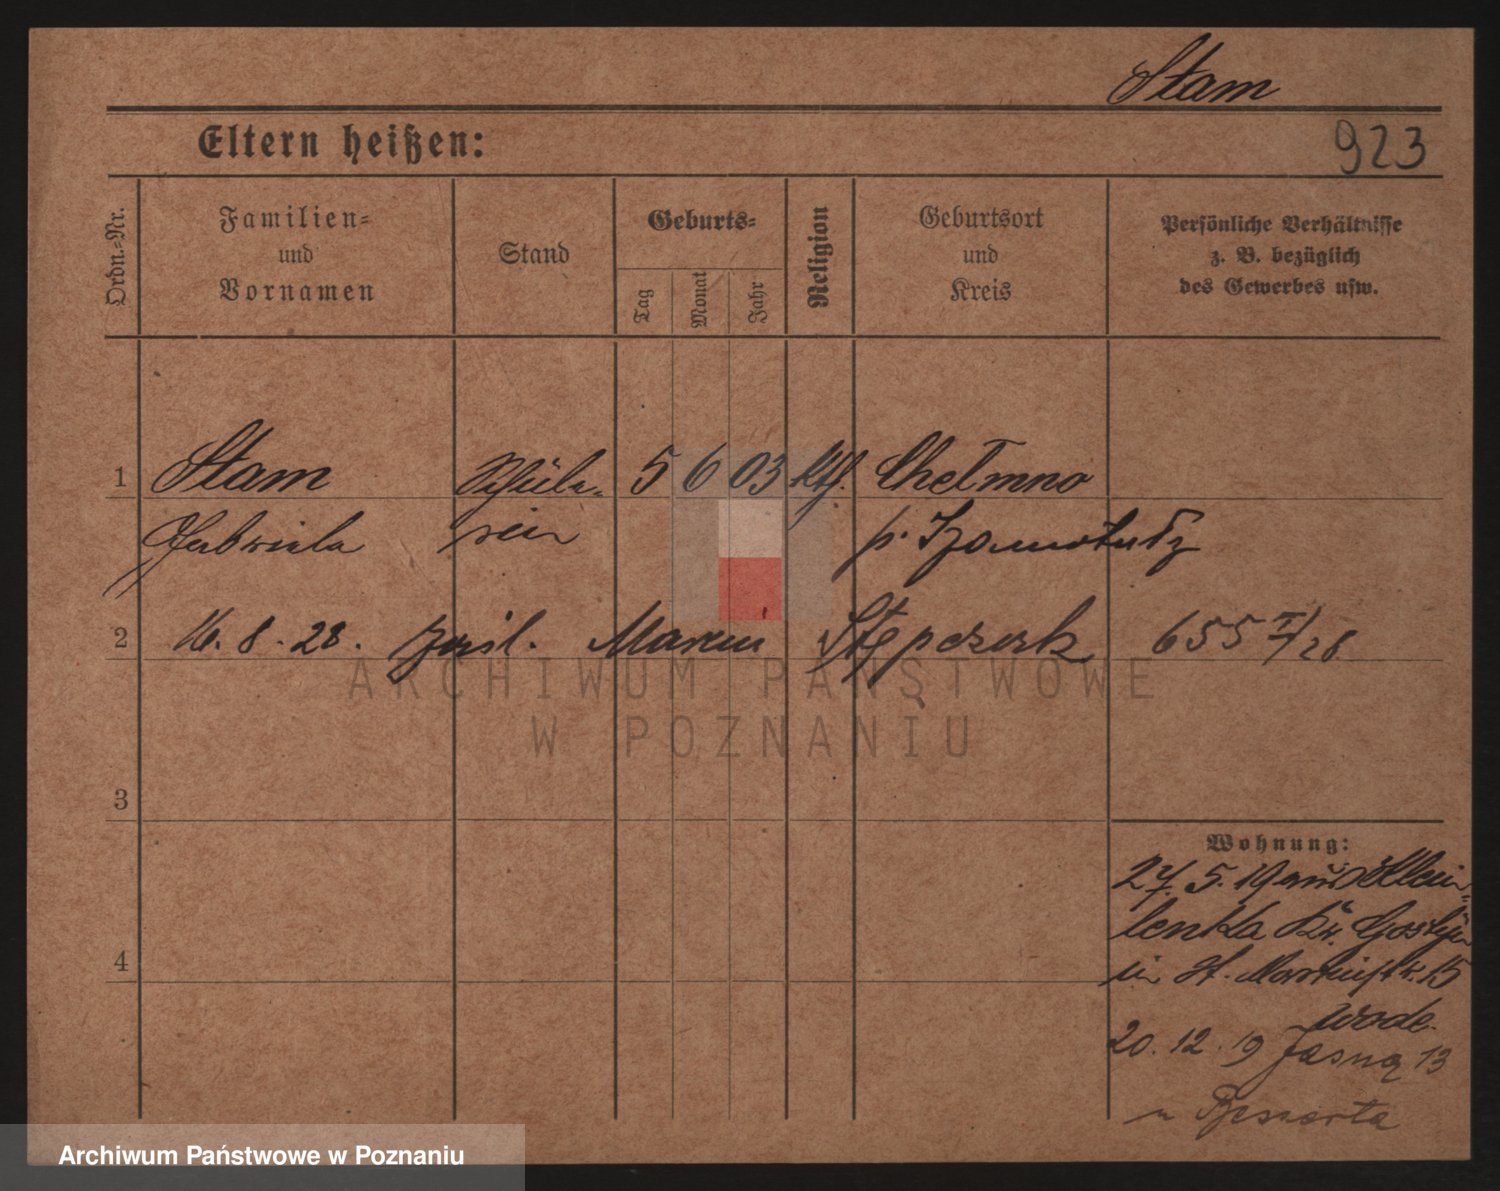 Stam
Eltern heißen:
923
Ordn.-Nr.
Familien-
und
Vornamen
Stand
Geburts-
Tag
Monat
Jahr
Religion
Geburtsort
und
Kreis
Persönliche Verhältnisse
z. B. bezüglich
des Gewerbes usw.
1 Stam Schüle- 5 6 03 kth. Chełmno
Gabriela rin p. Szamotuły
2 16. 8. 28. Marcin 655 28
ARCHIWUM PAŃSTWOWE
W POZNANIU
3
Wohnung:
27. 5. 19 aus Klein-
lenka Kr. Gostyn
4
in St. Martinstr. 15
Wode.
20. 12. 19 Jasna 13
Archiwum Państwowe w Poznaniu